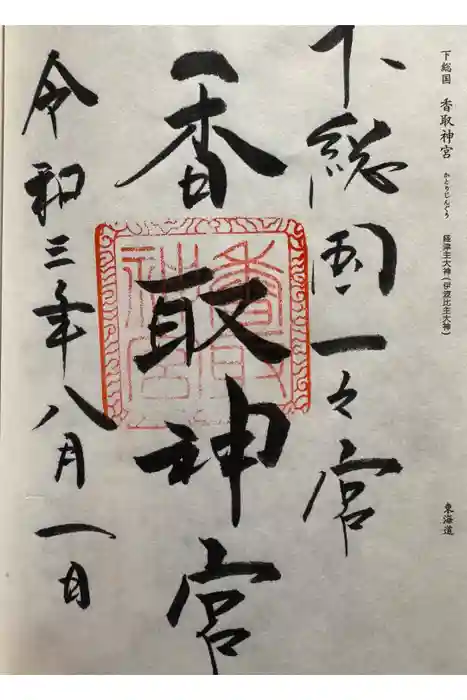 下総国 香取神宮 かとりじんぐう 経津主大神（伊波比主大神） 東海道
下総国一之宮
香取神宮
香取神宮
令和三年八月一日